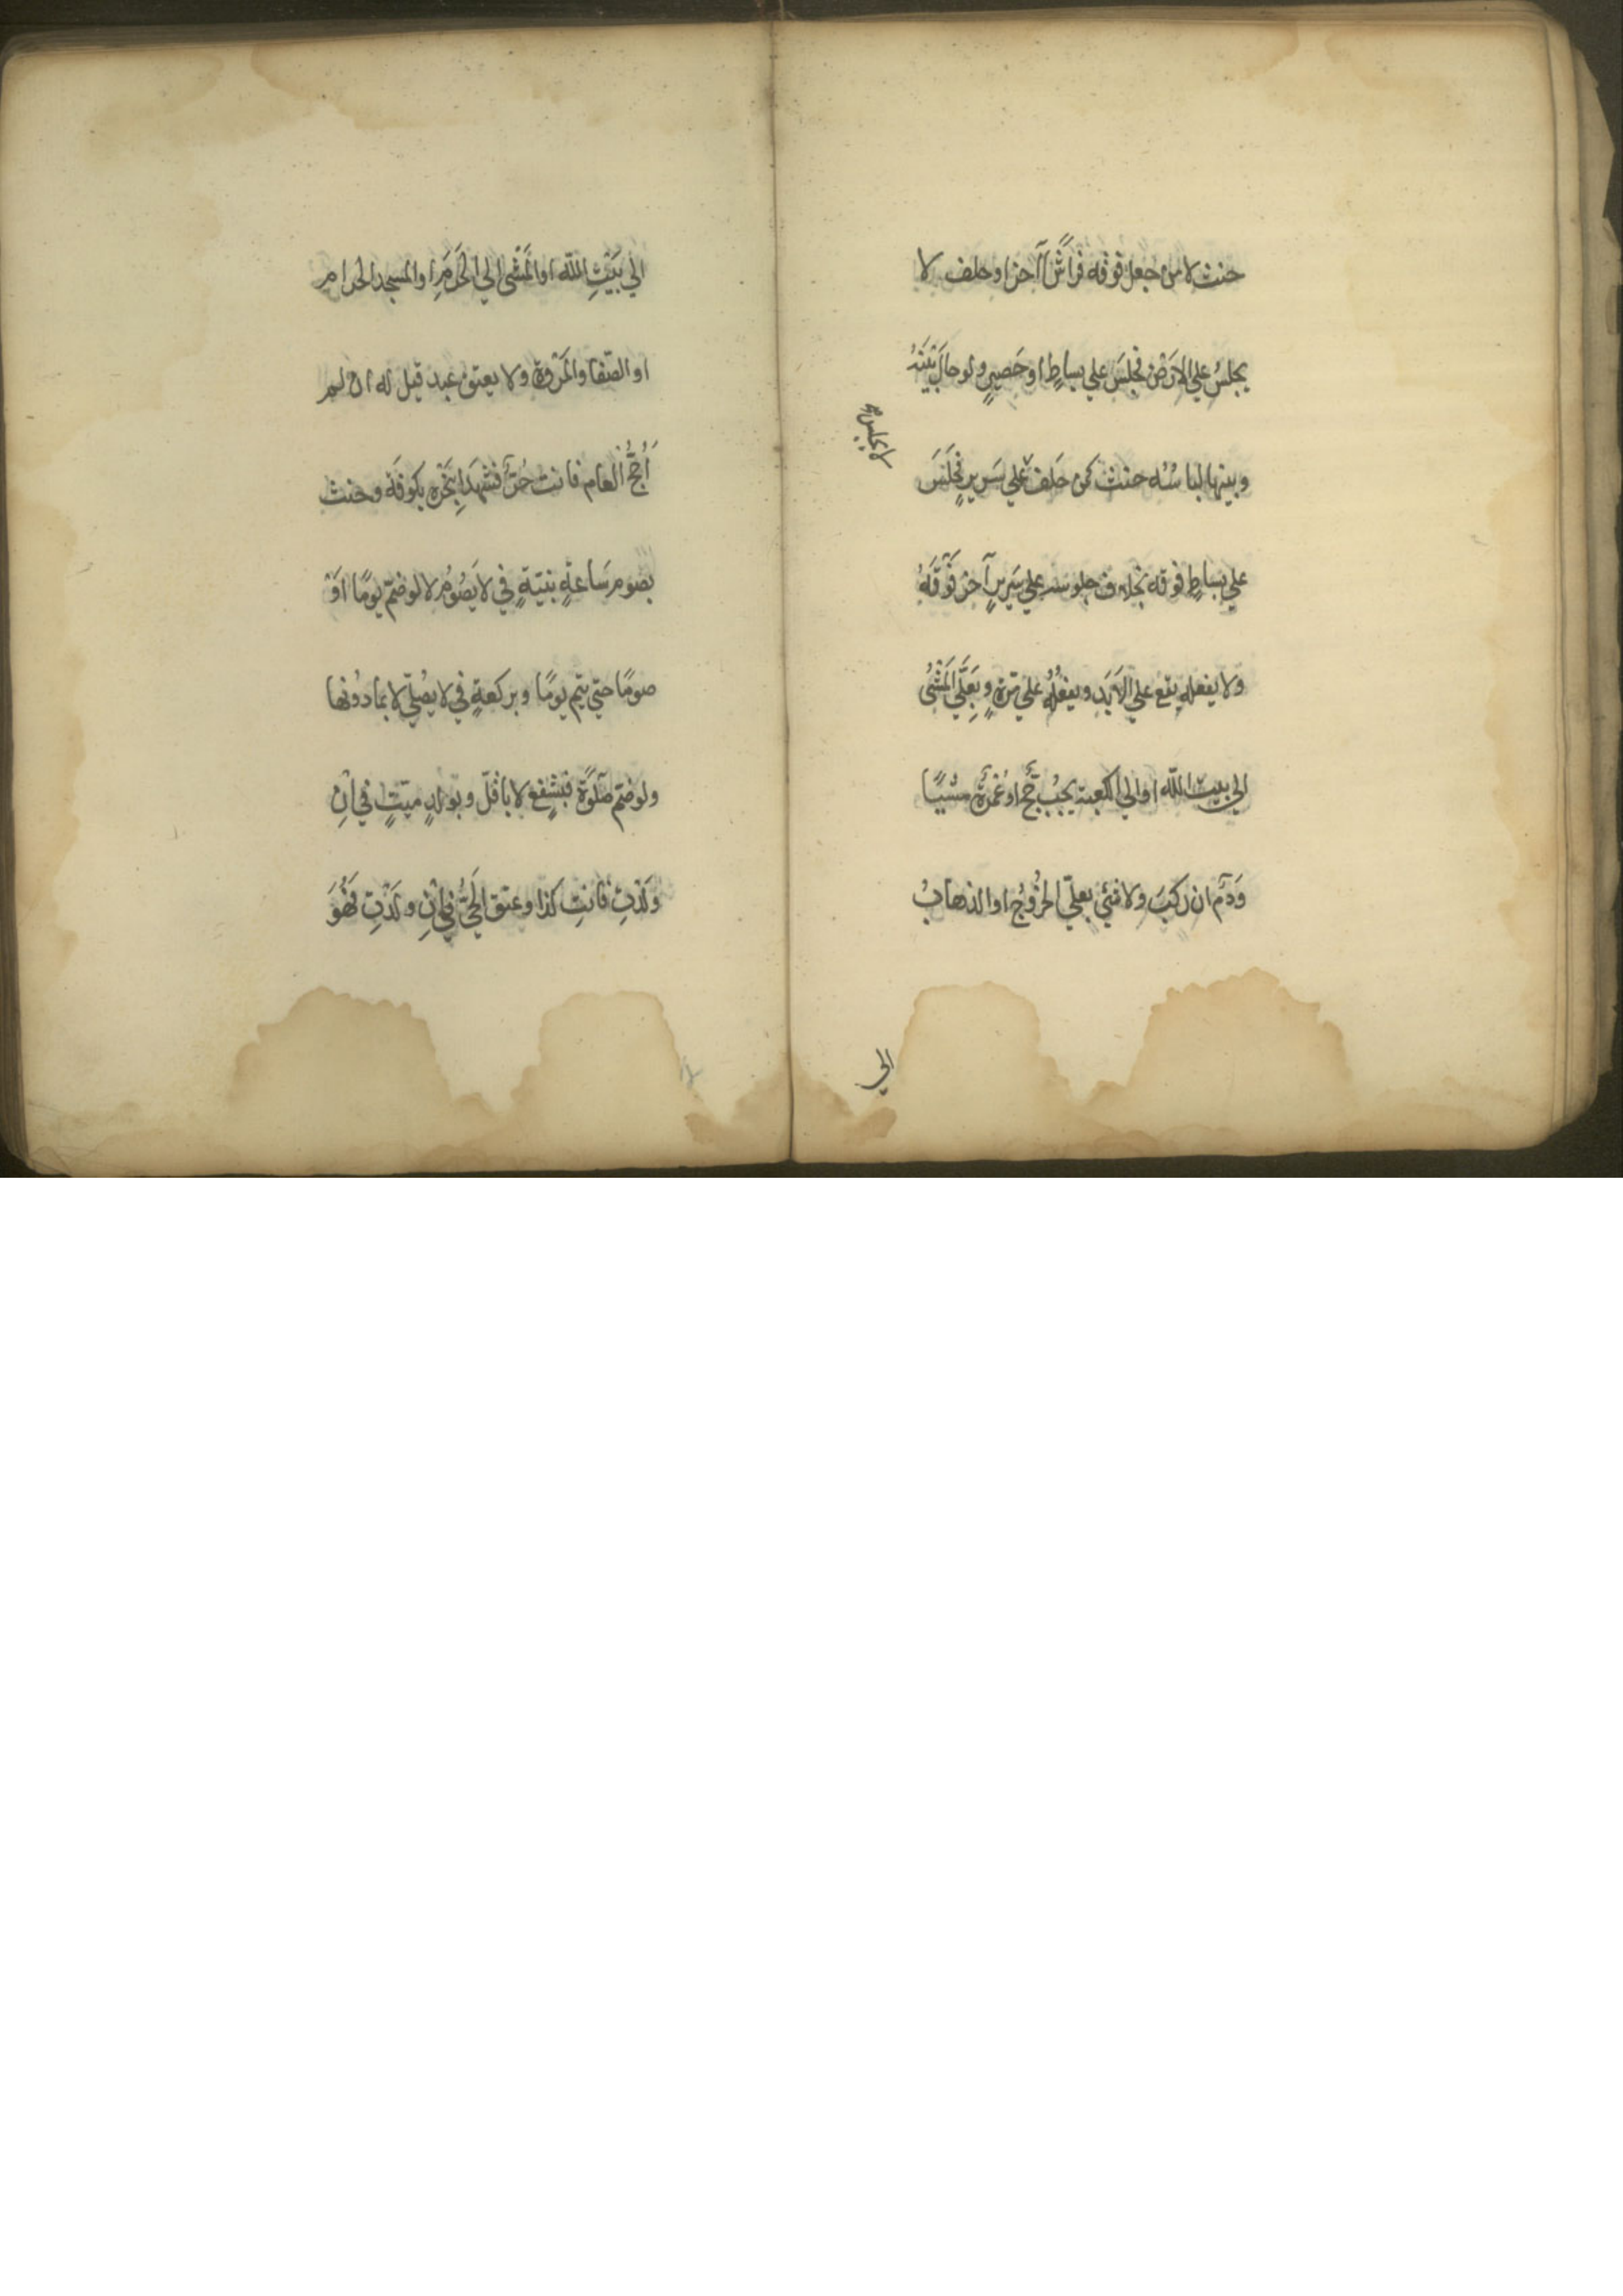 حنث لا من جعل فوقه فراشًا آخر او حلف لا
يجلسُ علي الارَضْ فجلسَ علي بساطٍ او حَصيرٍ ولو حالَ بَيْنَهُ
وبينها لباسُه حنث كمن حَلف علي سَريرٍ فجَلَسَ
لا يجلسُ
علي بساطٍ فوقه بخلاف جلوسه علي سَريرٍ آخر فَوْقَهُ
ولا يفعله يقع علي الاَبَدِ ويفعلُه علي مَرّةٍ وبِعَلَيَّ المَشْيُ
الي بيت اللّه او الي الكعبة يجبُ حَجٌّ او عُمْرَةٌ مشيًا
وَدَمٌ ان ركبَ ولا شئ بعليّ الخُرُوْجُ او الذهابُ
الي
الي بَيْتِ اللّه او المَشْى الي الحَرَمِ او المسجد الحرام
او الصّفا والمَرْوة ولا يعتق عبد قيل له ان لم
اَحُجَّ العام فانت حُرٌّ فشهدا بِنَحْرِه بكوفَة وحنث
بصوم سَاعةٍ بنيّةٍ في لا يَصُوْمُ لا لو ضمّ يومًا اَوْ
صومًا حتي يتم يومًا وبركعةٍ في لا يُصلّي لا بما دُونها
ولو ضمّ صَلوةً فبشفعٍ لا باقلّ وبولدٍ ميّتٍ في اِنْ
وَلَدْتِ فانتِ كذا وعتق الحَيُّ في اِنْ ولَدْتِ فَهُوَ